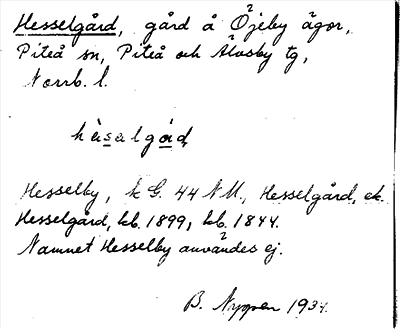 Hesselgård, gård å Öjeby ägor,
Piteå sn, Piteå och Älvsby tg,
Norrb. l.
hàsalgård
Hesselby, k G. 44 NU., Hesselgård, ek.
Hesselgård, kb. 1899, kb. 1844.
Namnet Hesselby användes ej.
B. Nyppen 1934.